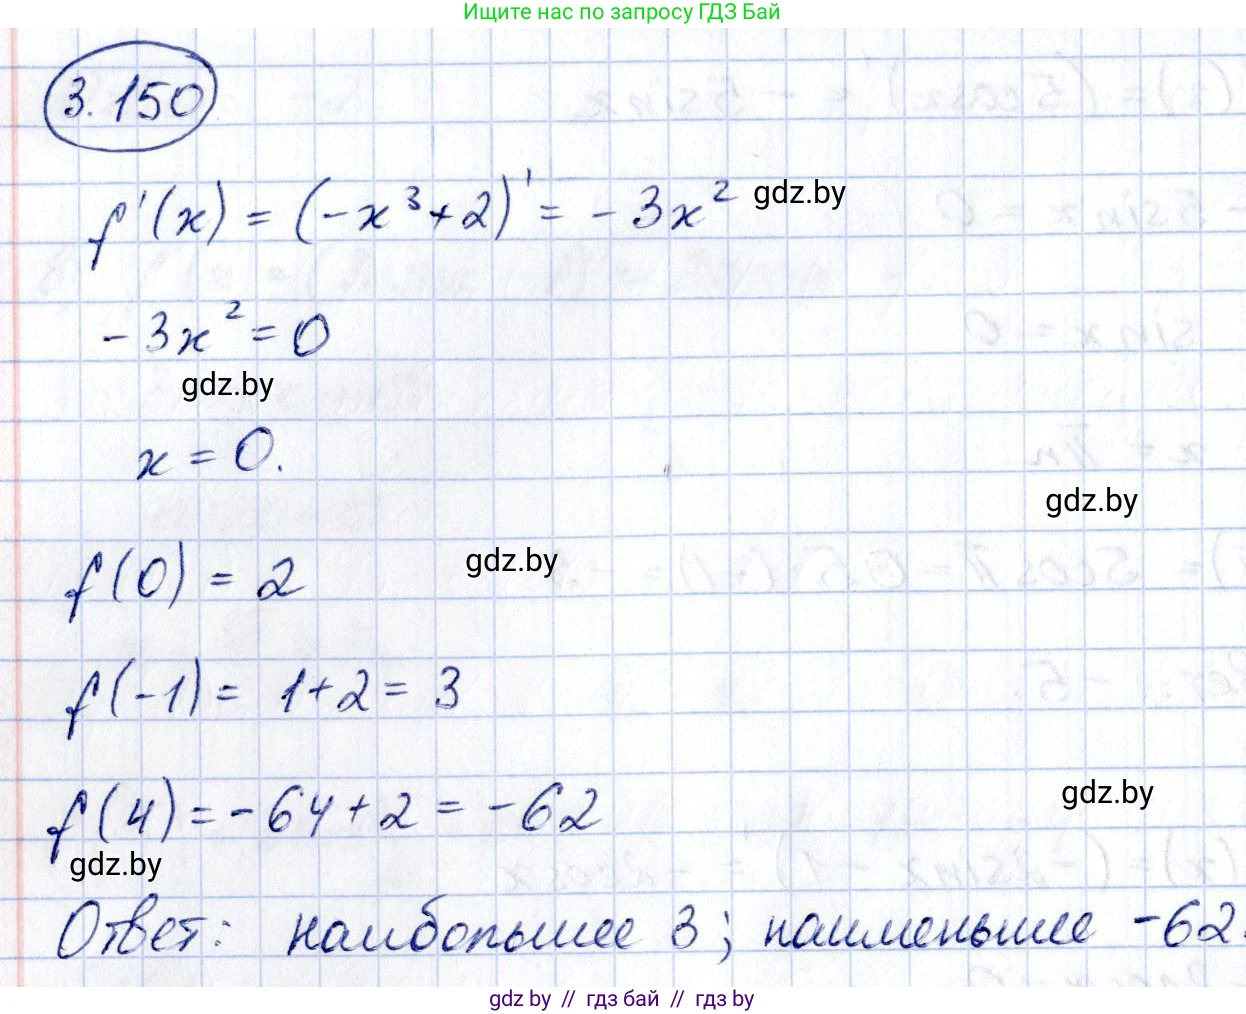 Ищите нас по запросу ГДЗ Бай
3.150
f'(x) = (-x³+2)' = -3x² gdz.by
-3x² = 0
gdz.by
x = 0.
gdz.by
f(0) = 2 gdz.by
f(-1) = 1+2 = 3
f(4) = -64+2 = -62 gdz.by
gdz.by
Ответ: наибольшее 3; наименьшее -62.
gdz.by // гдз бай // гдз by